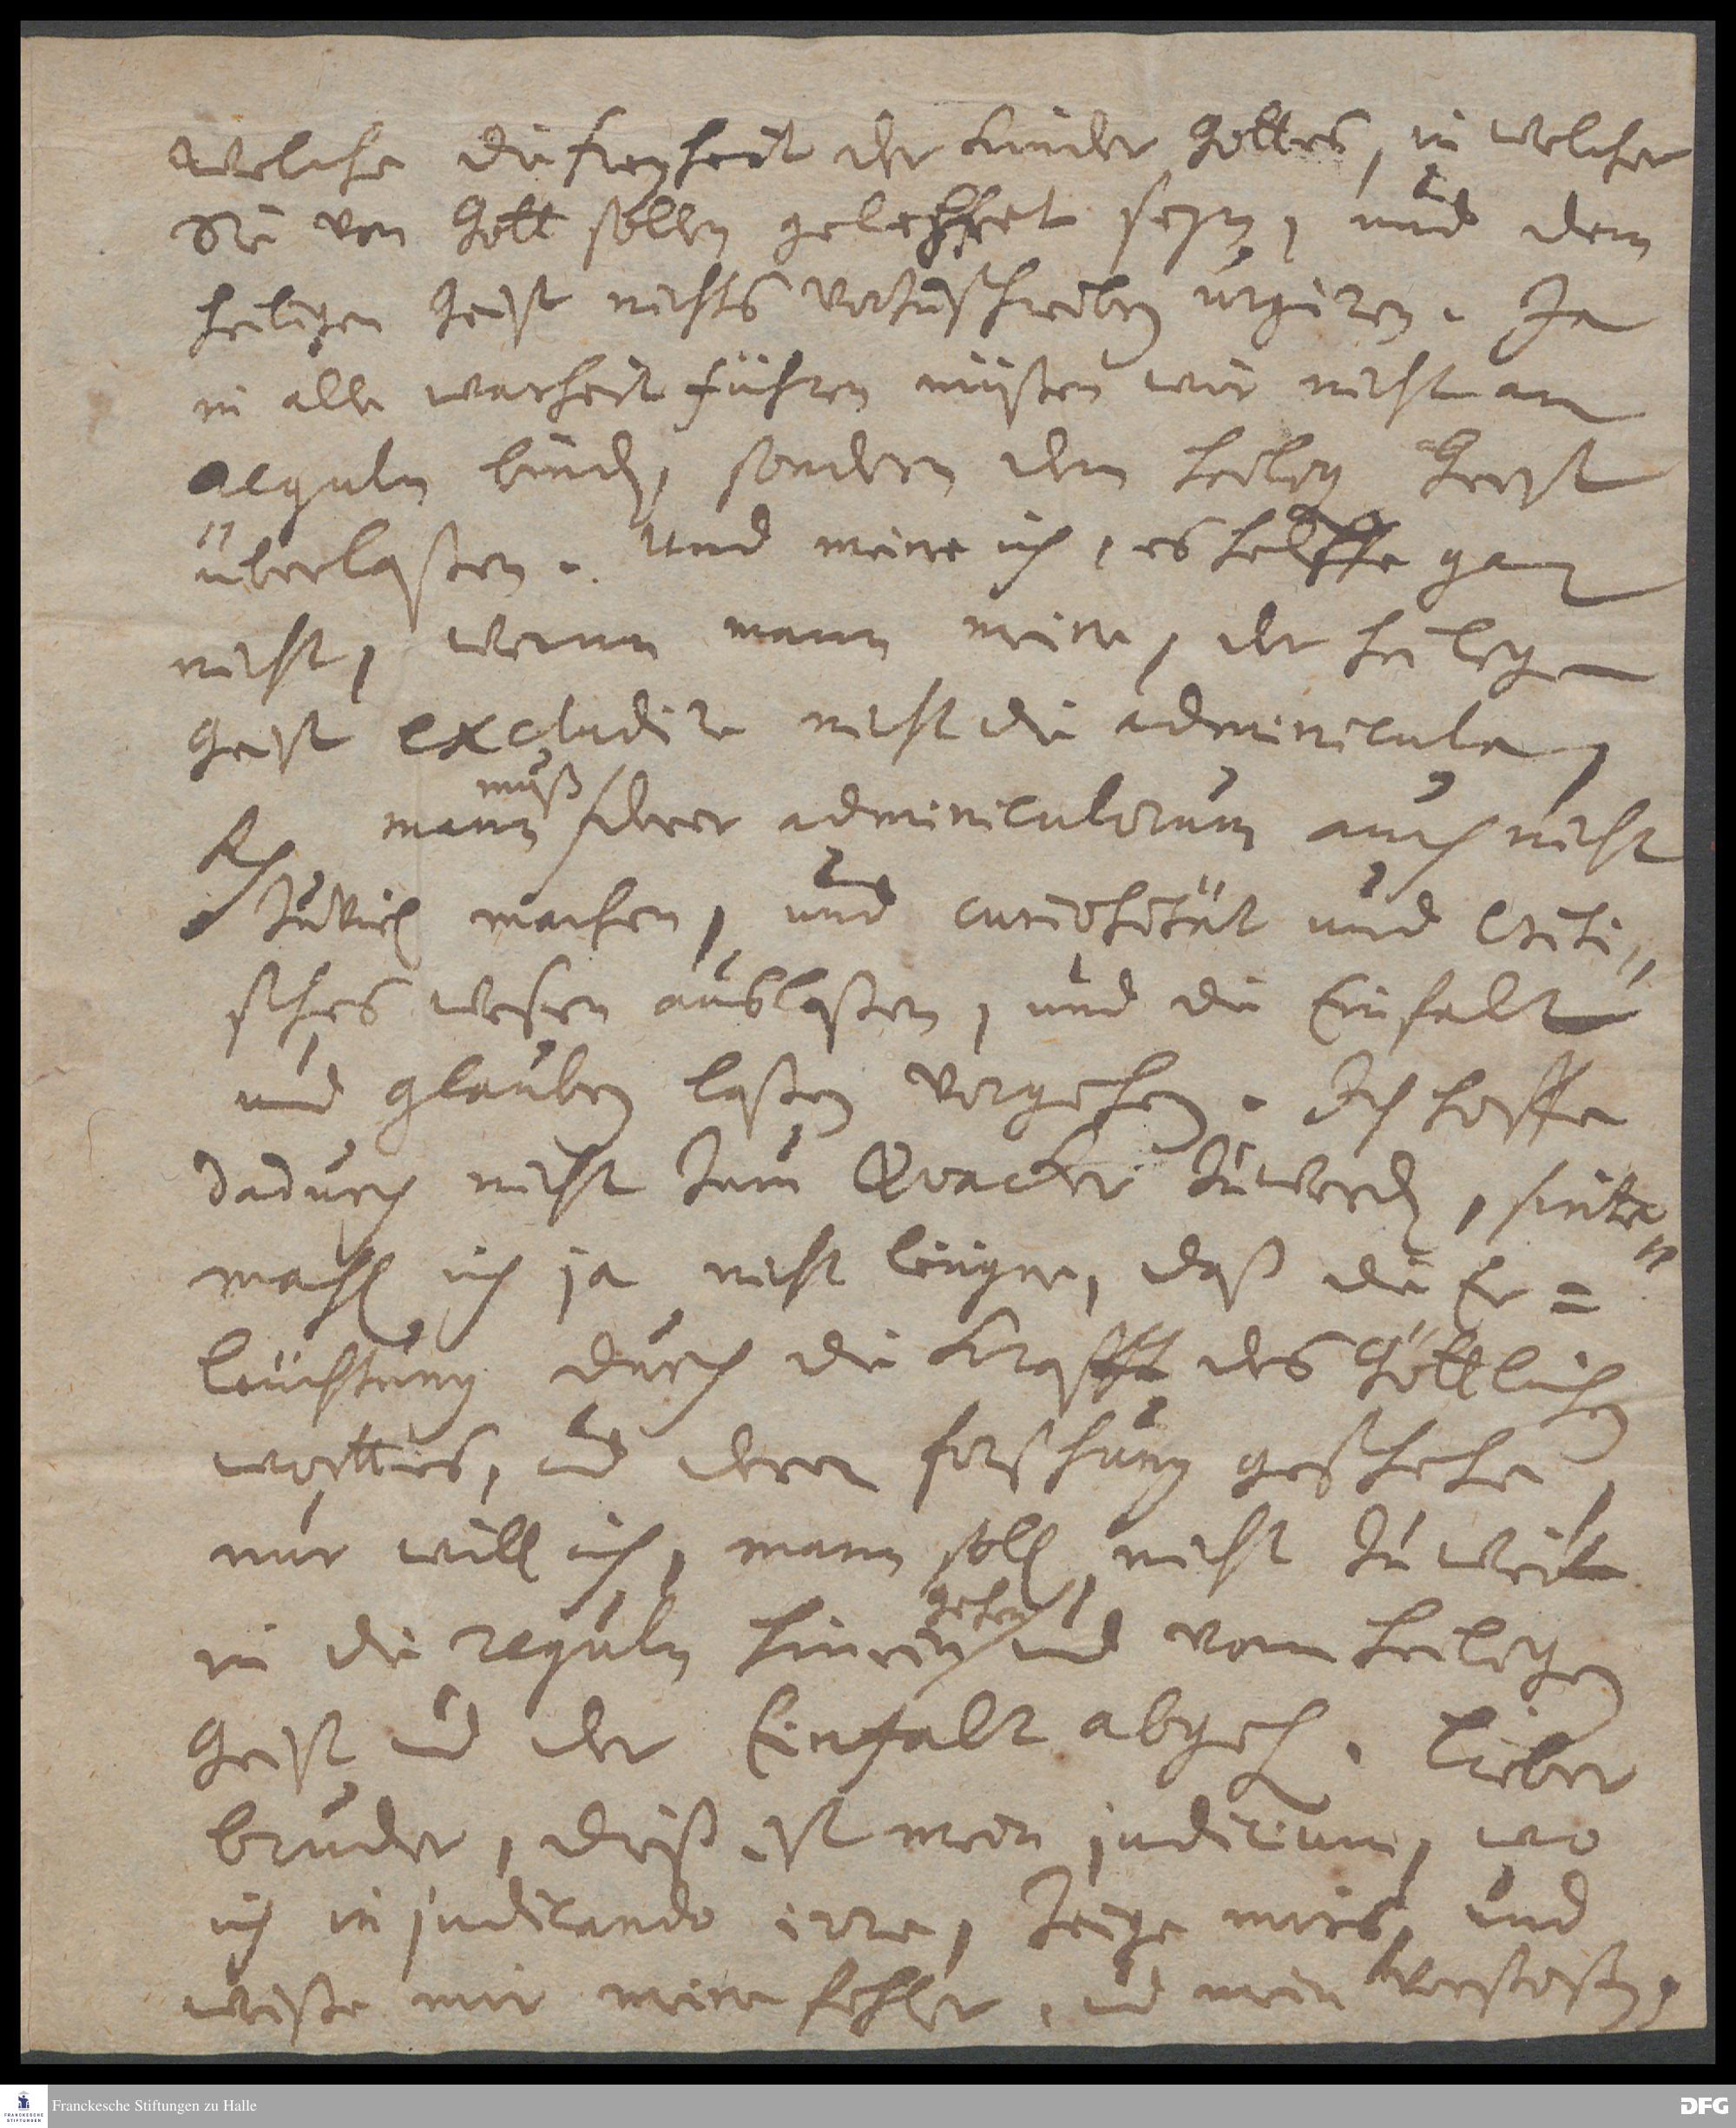 welche die freyheit der Kinder Gottes, in welcher
Sie von Gott sollen gelehret seyn, und dem
heiligen Geist nichts vorzuschreiben urgiren. Ja
in alle warheit führen müßen wir nicht an
Reguln binden, sondern dem heiligen Geist
überlaßen. Und meine ich, es helffe gar
nicht, wenn mann meine, der heiligen
Geist excludire nicht die adminicula,
mann muß derer adminiculorum auch nicht
zu viel machen, und curiosität und Criti„
sches wesen auslaßen, und die Einfalt
und glauben laßen vorgehen. Ich hoffe
dadurch nicht zum Qvacker zu werden, sinte„
mahl ich ja nicht leugne, daß die Er=
leuchtung durch die Krafft des Göttlichen
worttes, und deren forschung geschehe,
nur will ich, mann soll nicht zu weit
in die reguln hinein gehen und vom heiligen
Geist und der Einfalt abgehen. Lieber
bruder, dieß ist mein judicium, wo
ich in judicando irre, zeige mirs, und
weiße mir meine fehler, und mein verstoßen,
Franckesche Stiftungen zu Halle
DFG